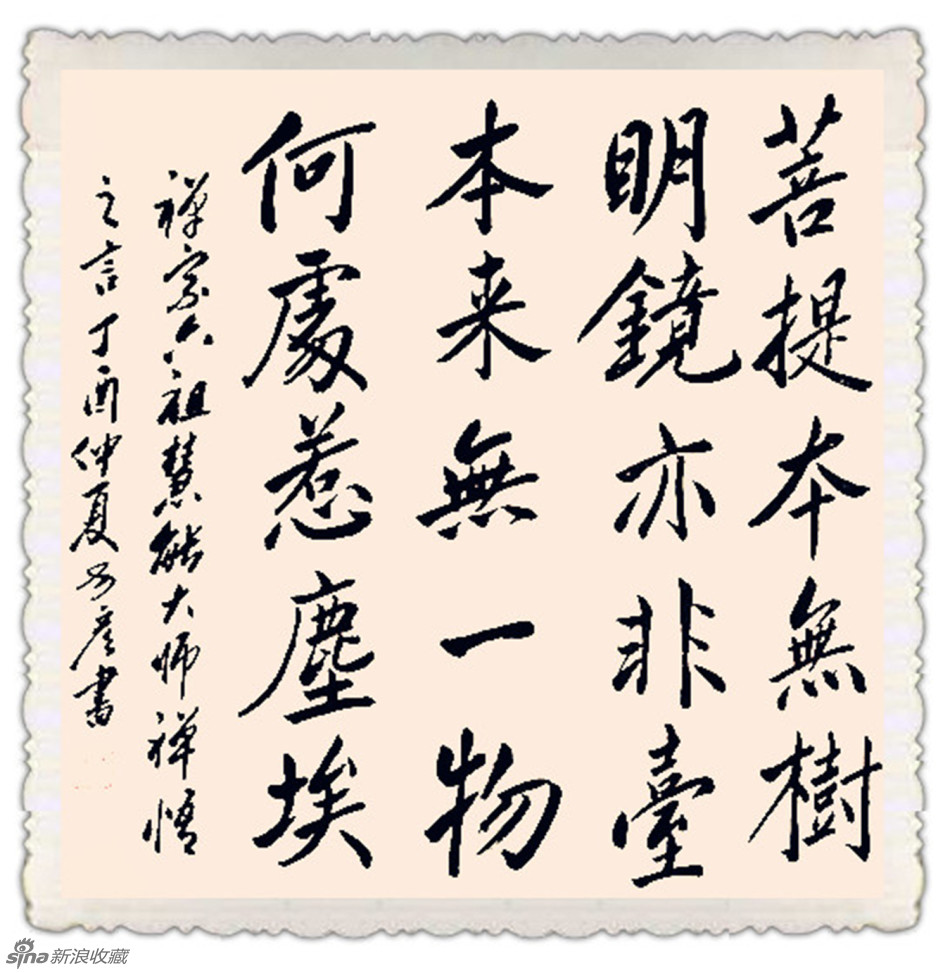 菩提本無樹
明鏡亦非臺
本来無一物
何處惹塵埃
禅宗六祖慧能大师禅悟
之言丁酉仲夏子彦書
sina新浪收藏